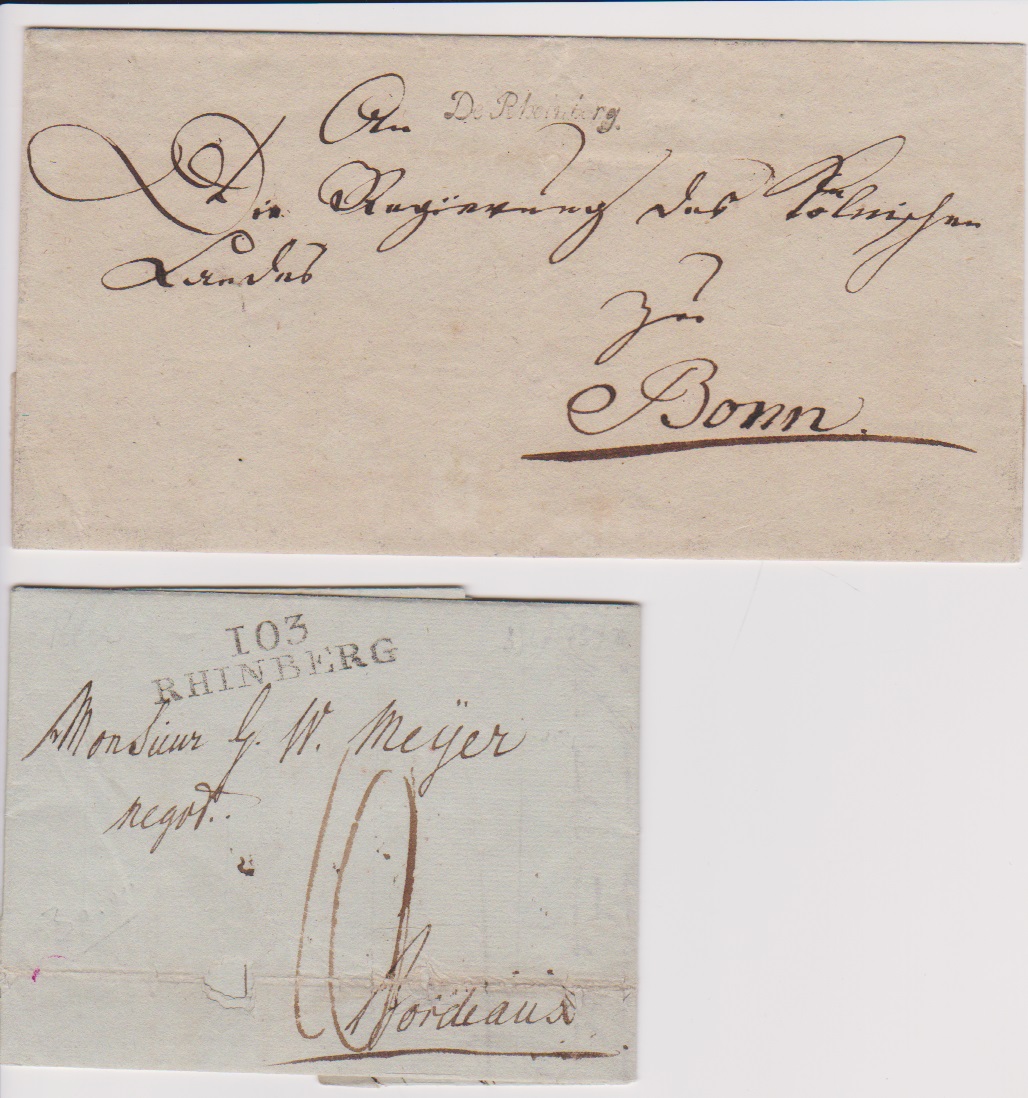 De Rheinberg.
An
Die Regierung des Kölnischen
Landes
zu
Bonn.
103
RHINBERG
Monsieur G. W. Meÿer
negot.
10
Bordeaux